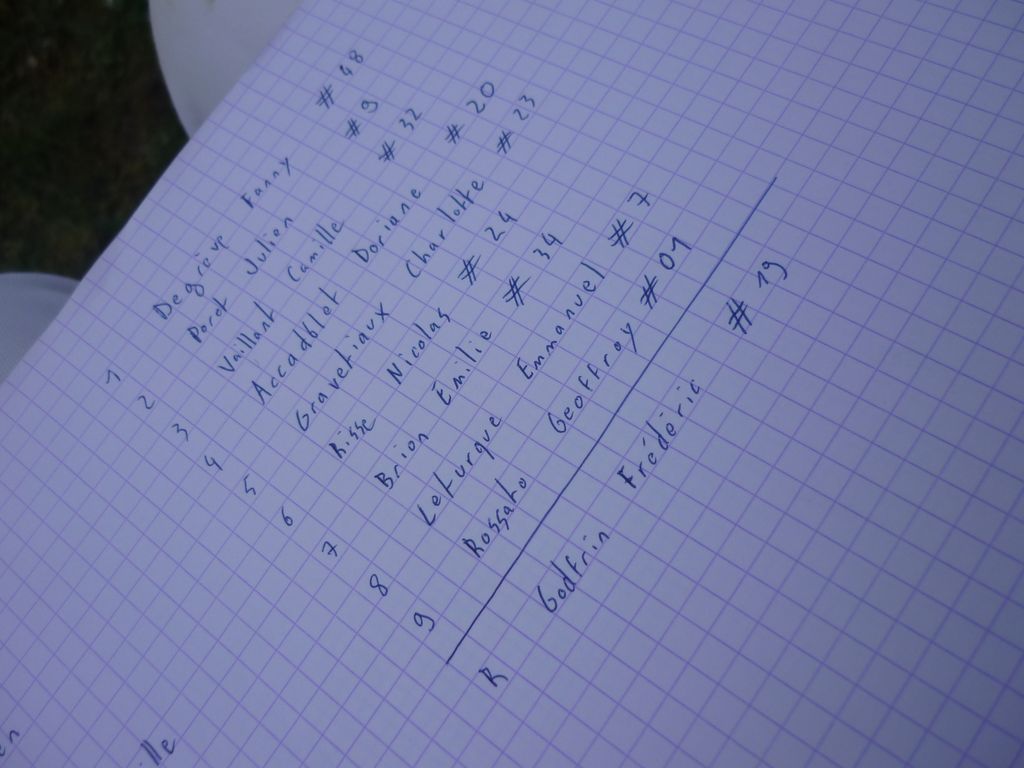 1 Degrève Fanny # 48
2 Poret Julien # 9
3 Vaillant Camille # 32
4 Accadblet Doriane # 20
5 Gravetiaux Charlotte # 23
6 Risse Nicolas # 24
7 Brion Émilie # 34
8 Leturque Emmanuel # 7
9 Rossato Geoffroy # 01
R Godfrin Frédéric # 19